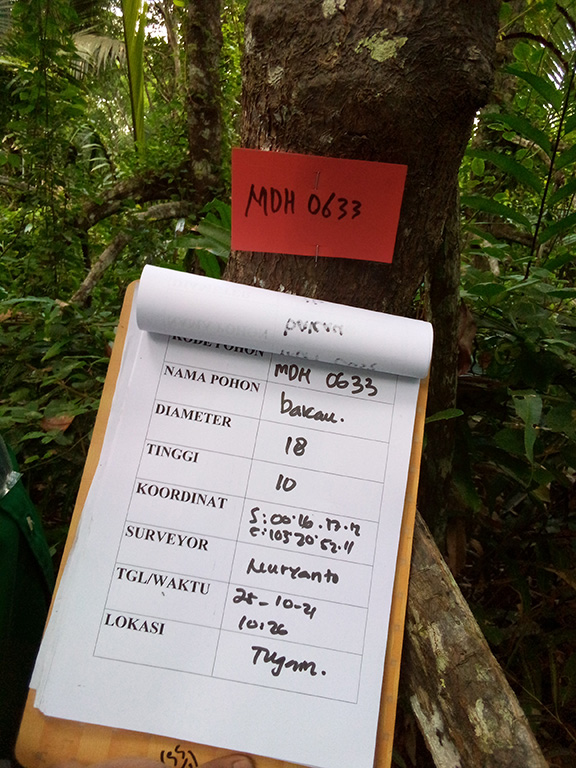 MDH 0633
KODE POHON MDH 0633
NAMA POHON bakau.
DIAMETER 18
TINGGI 10
KOORDINAT S:00°16.
E:103°20'52.11
SURVEYOR Nuryanto
TGL/WAKTU 25-10-21
10:26
LOKASI